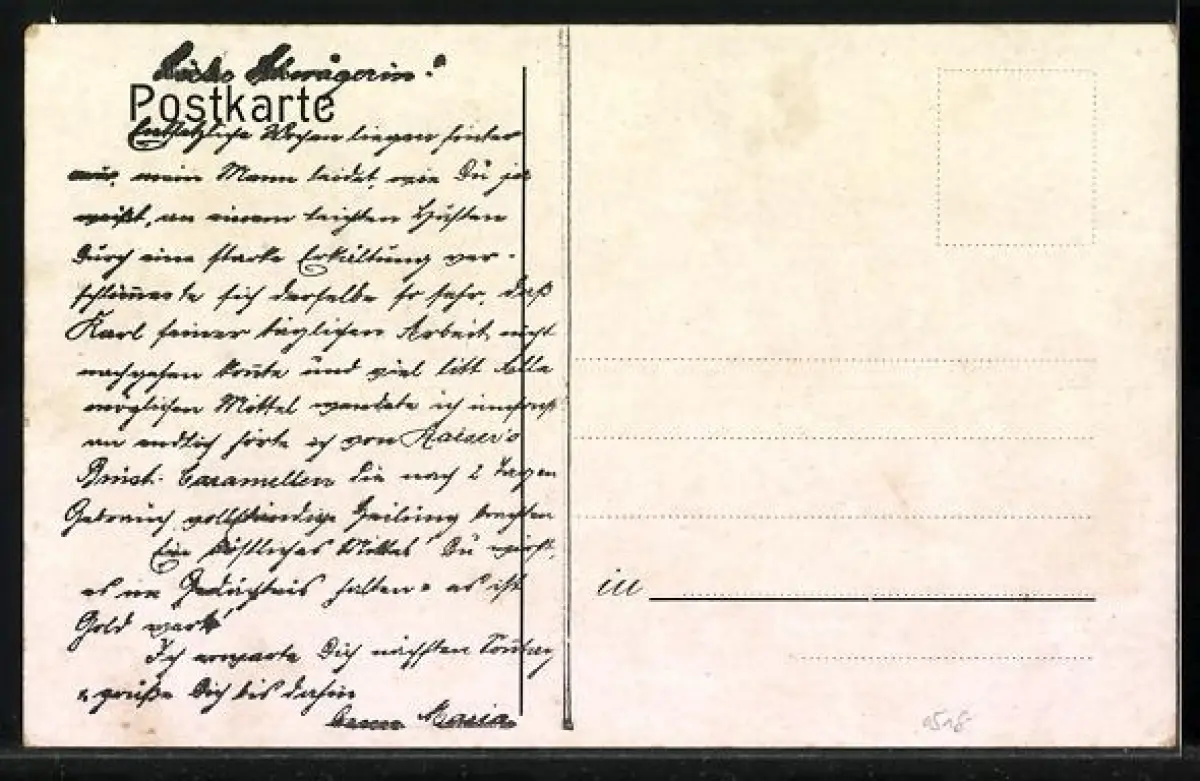 Liebe Schwägerin!
Postkarte
Entsetzliche Wochen liegen hinter
mir, mein Mann leidet, wie Du ja
weißt, an einem leichten Husten
Durch eine starke Erkältung ver-
schlimmerte sich derselbe so sehr, daß
Karl seiner täglichen Arbeit nicht
nachgehen konnte und viel litt Alle
möglichen Mittel wendete ich umsonst
an endlich hörte ich von Kaiser's
Brust-Caramellen die nach 2 Tagen
Gebrauch vollständige Heilung brachten
Ein köstliches Mittel Du wirst
es im Gedächtnis halten es ist
Gold wert
Ich erwarte Dich nächsten Sonntag
u grüße Dich bis dahin
Deine Maria
in
0518